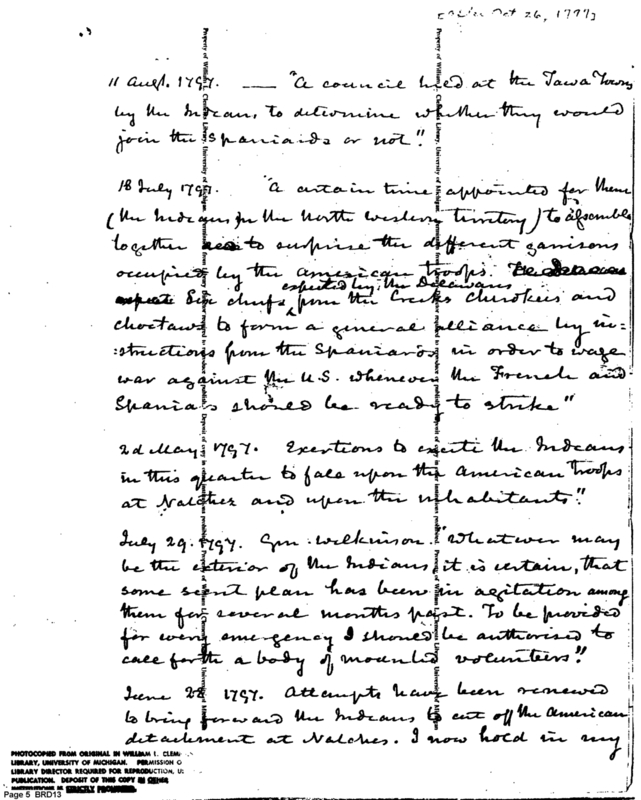 Oct 26, 1797]
11 Augt. 1797. — "A council held at the Tawa Towns
by the Indians, to determine whether they would
join the Spaniards or not."
18 July 1797. "A certain time appointed for them
(the Indians in the North Western territory) to assemble
together to surprise the different garrisons
occupied by the American troops.
expected by the Delawares
Six chiefs from the Creeks Cherokees and
Choctaws to form a general alliance by in-
:structions from the Spaniards in order to wage
war against the U.S. whenever the French and
Spaniards should be ready to strike"
2d May 1797. Exertions to excite the Indians
in this quarter to fall upon the American troops
at Natchez and upon the inhabitants."
July 29. 1797. Gen. Wilkinson. "Whatever may
be the exterior of the Indians, it is certain, that
some secret plan has been in agitation among
them for several months past. To be provided
for every emergency I should be authorised to
call forth a body of mounted volunteers."
June 28 1797. Attempts have been renewed
to bring forward the Indians to cut off the American
detachment at Natches. I now hold in my
PHOTOCOPIED FROM ORIGINAL IN WILLIAM L. CLEM
LIBRARY, UNIVERSITY OF MICHIGAN. PERMISSION O
LIBRARY DIRECTOR REQUIRED FOR REPRODUCTION, U
PUBLICATION. DEPOSIT OF THIS COPY IN OTHER
INSTITUTIONS IS STRICTLY PROHIBITED.
Page 5 BRD13